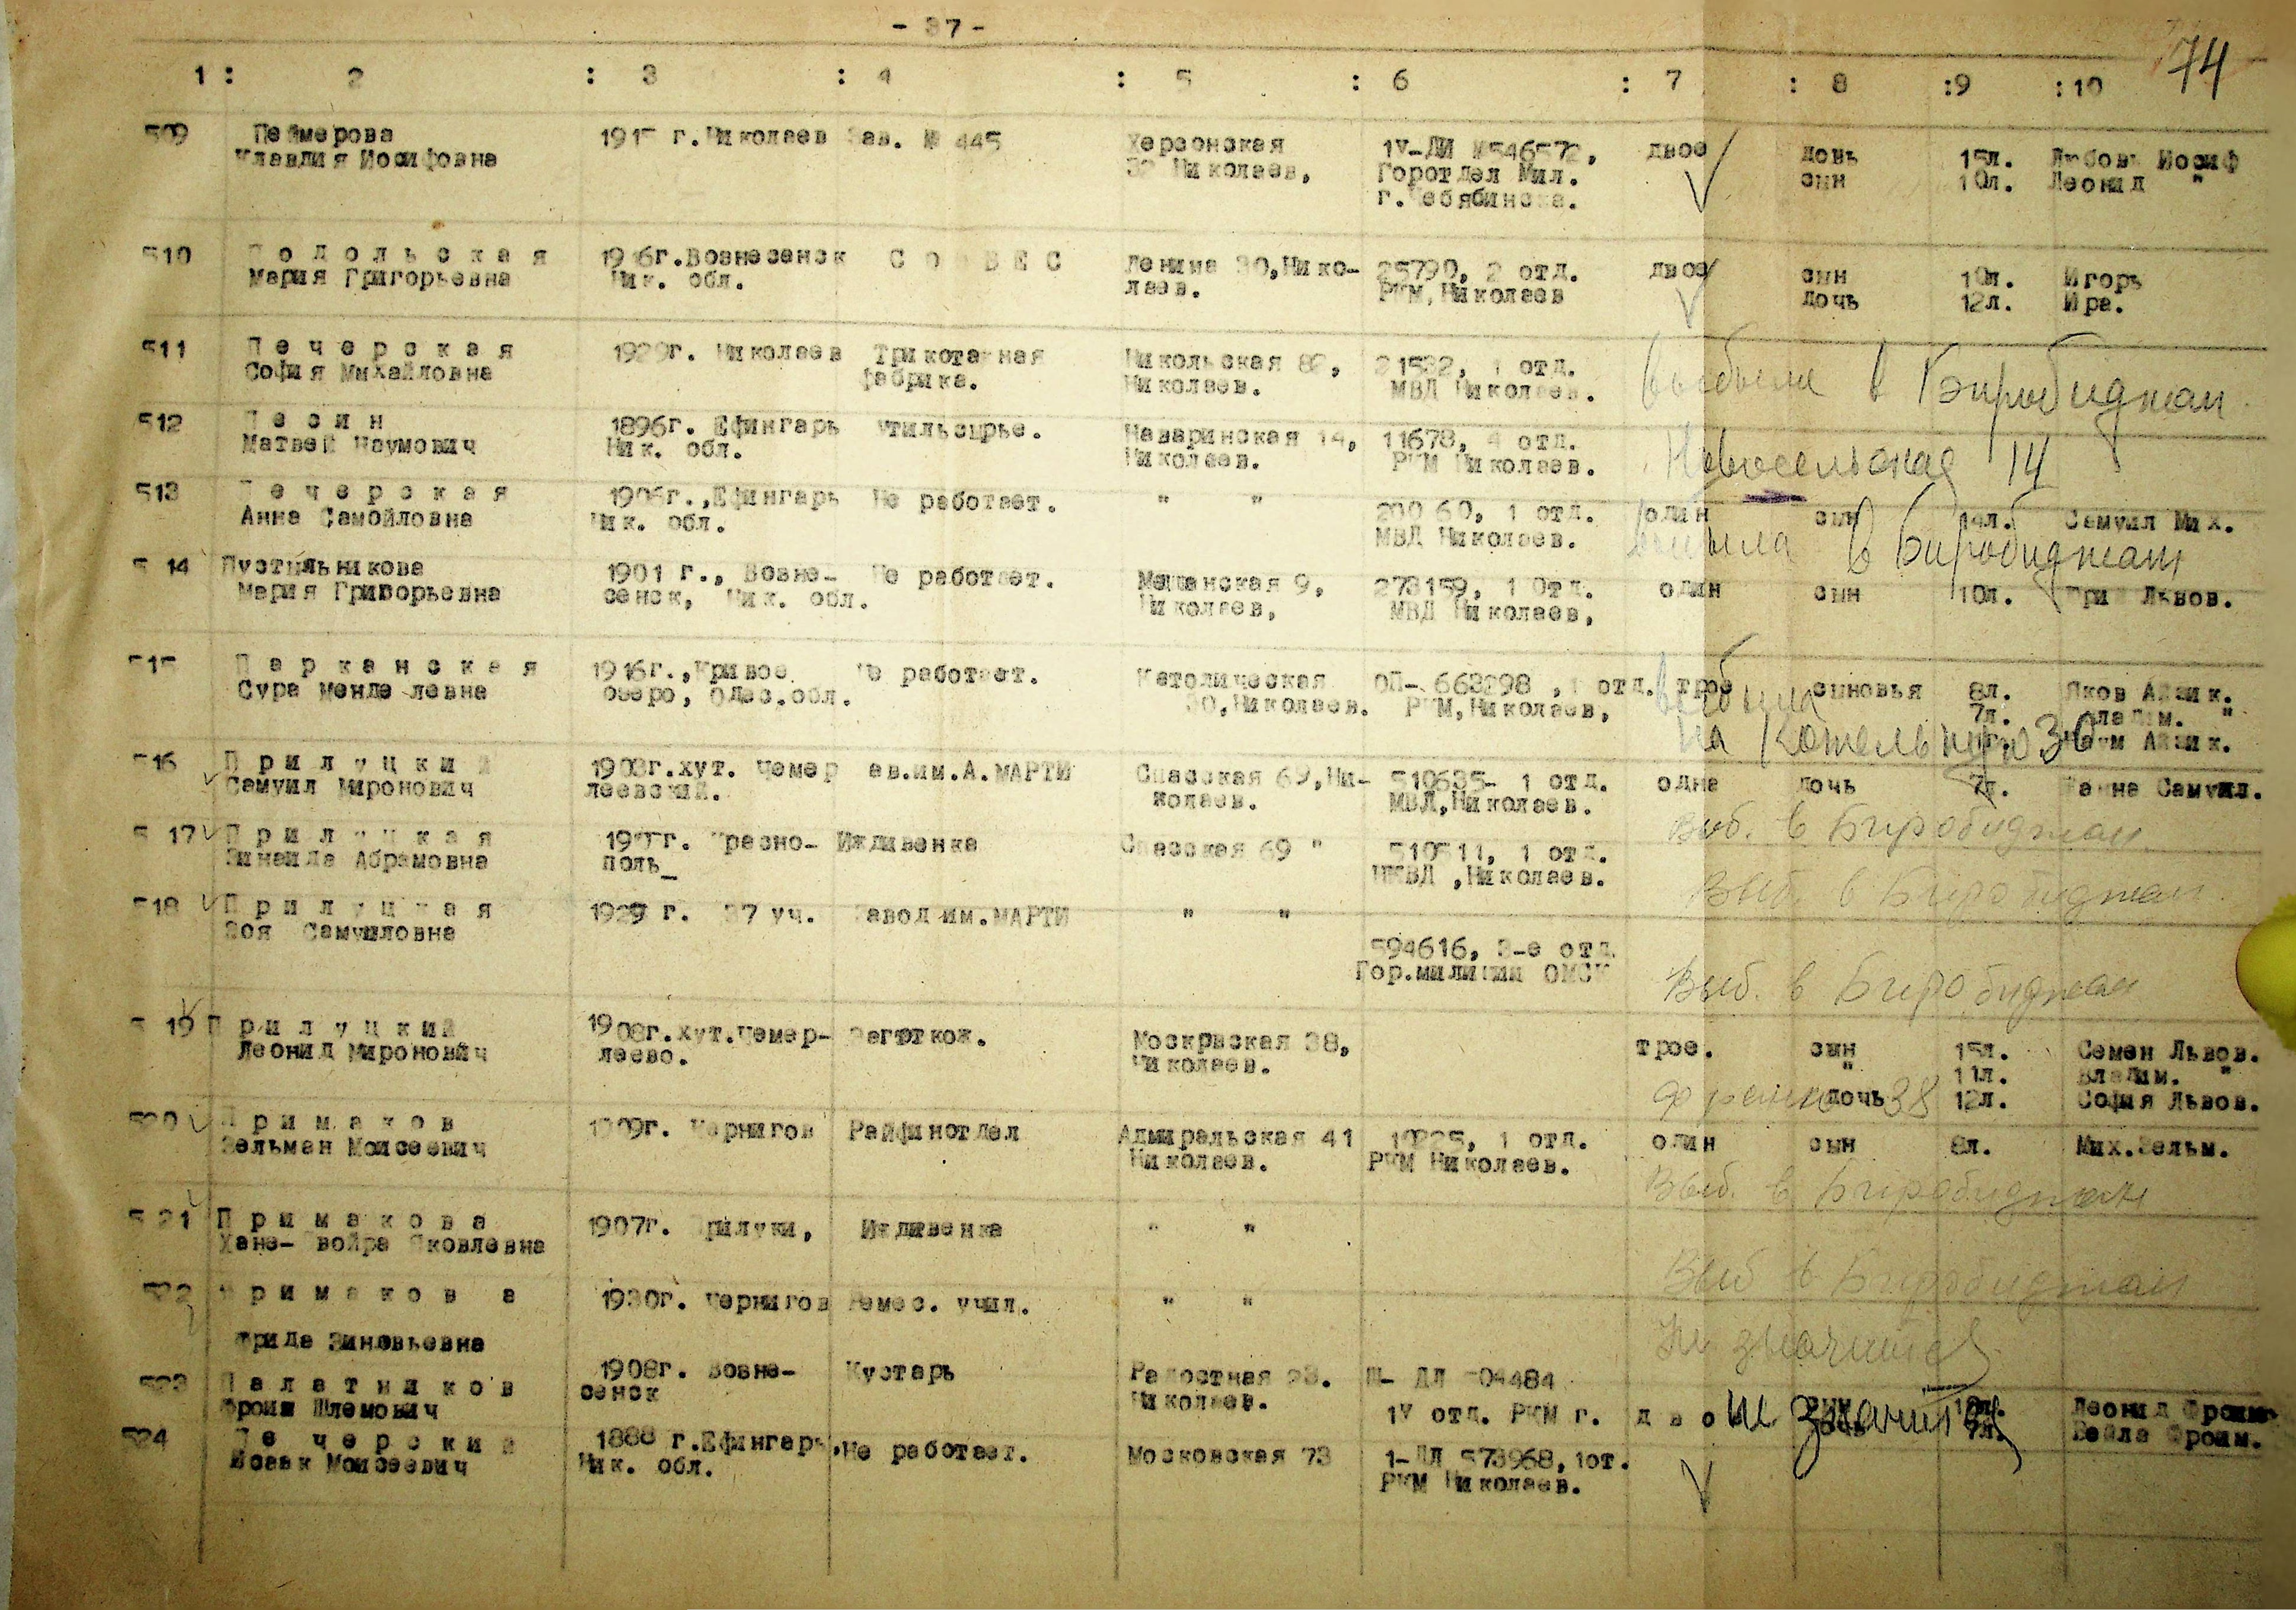 - 37 -
74
1 : 2 : 3 : 4 : 5 : 6 : 7 : 8 :9 :10
509 Пеймерова 191 г.Николаев Зав. № 445 Херсонская 1У-ЛИ двое дочь 15л. Любовь Иосиф
Клавдия Иосифовна 32 Николаев, Горотдел Мил. сын 10л. Леонид "
г.Чебябинска.
510 П о д о л ь с к а я 1916г.Вознесенск С О Б Е С Ленина 30,Нико- 25790, 2 отд. двое сын 10л. Игорь
Мария Григорьевна Ник. обл. лаев. РКМ,Николаев дочь 12л. Ира.
511 П е ч е р с к а я 1929г. Николаев Трикотажная Никольская 82, 21532, 1 отд. выбыла в Биробиджан
София Михайловна фабрика. Николаев. МВД Николаев.
512 П е с и н 1896г. Ефингарь утильсырье. Наваринская 14, 11678, 4 отд. Новосельская 14
Матвей Наумович Ник. обл. Николаев. РКМ Николаев.
513 П е ч е р с к а я 1906г.,Ефингарь Не работает. " " 200 60, 1 отд. один сын 14л. Самуил Мих.
Анна Самойловна Ник. обл. МВД Николаев. выбыла в Биробиджан
5 14 Пустыльникова 1901 г., Возне- Не работает. Мещанская 9, 273159, 1 Отд. один сын 10л. Львов.
Мария Григорьевна сенск, Ник. обл. Николаев, МВД Николаев,
515 П а р к а н с к а я 1916г.,Кривое Не работает. Католическая ОП- 663298 , отд. трое сыновья 8л. Яков Айзик.
Сура Менделевна озеро, Одес.обл. 30,Николаев. РКМ,Николаев, выбыла 7л. Владим. "
на Котельную 30 Наум Айзик.
516 П р и л у ц к и й 1903г.хут. Чемер ав.им.А.МАРТИ Спасская 69,Ни- 510635- 1 отд. одна дочь 7л. Самуил.
Самуил Миронович леевский. колаев. МВД,Николаев. Выб. в Биробиджан
5 17 П р и л у ц к а я 190 г. Красно- Иждивенка Спасская 69 " 510511, 1 отд.
Зинаида Абрамовна поль_ НКВД ,Николаев. Выб. в Биробиджан
518 П р и л у ц к а я 1929 г. 37 уч. Завод им.МАРТИ " "
Зоя Самуиловна 594616, 3-е отд
Гор.милиции ОМСК Выб. в Биробиджан
5 19 П р и л у ц к и й 1908г.хут.Чемер- Заготкож. Москрвская 38, трое. сын 15л. Семен Львов.
Леонид Миронович леево. Николаев. " 11л. Владим. "
дочь 12л. София Львов.
38
520 П р и м а к о в 1909г. Чернигов Райфинотдел Адмиральская 41 1 отд. один сын 8л. Мих.Зельм.
Зельман Моисеевич Николаев. РКМ Николаев. Выб. в Биробиджан
5 21 П р и м а к о в а 1907г. Прилуки, Иждивенка " "
Хана- Яковлевна Выб в Биробиджан
522 П р и м а к о в а 1930г. Чернигов Ремес. учил. " "
Фрида Зиновьевна Не значится
523 П а л а т н и к о в 1908г. Возне- Кустарь Радостная 23. П- ДЛ 504484
Фроим Шлемович сенск Николаев. 1У отд. РКМ г. д в о е Не значится 10л. Леонид Фроим
7л. Бейла Фроим.
524 П е ч е р с к и й 1888 г.Ефингарь,Не работает. Московская 73 1-ДЛ 573968,1от.
Исаак Моисеевич Ник. обл. РКМ Николаев.